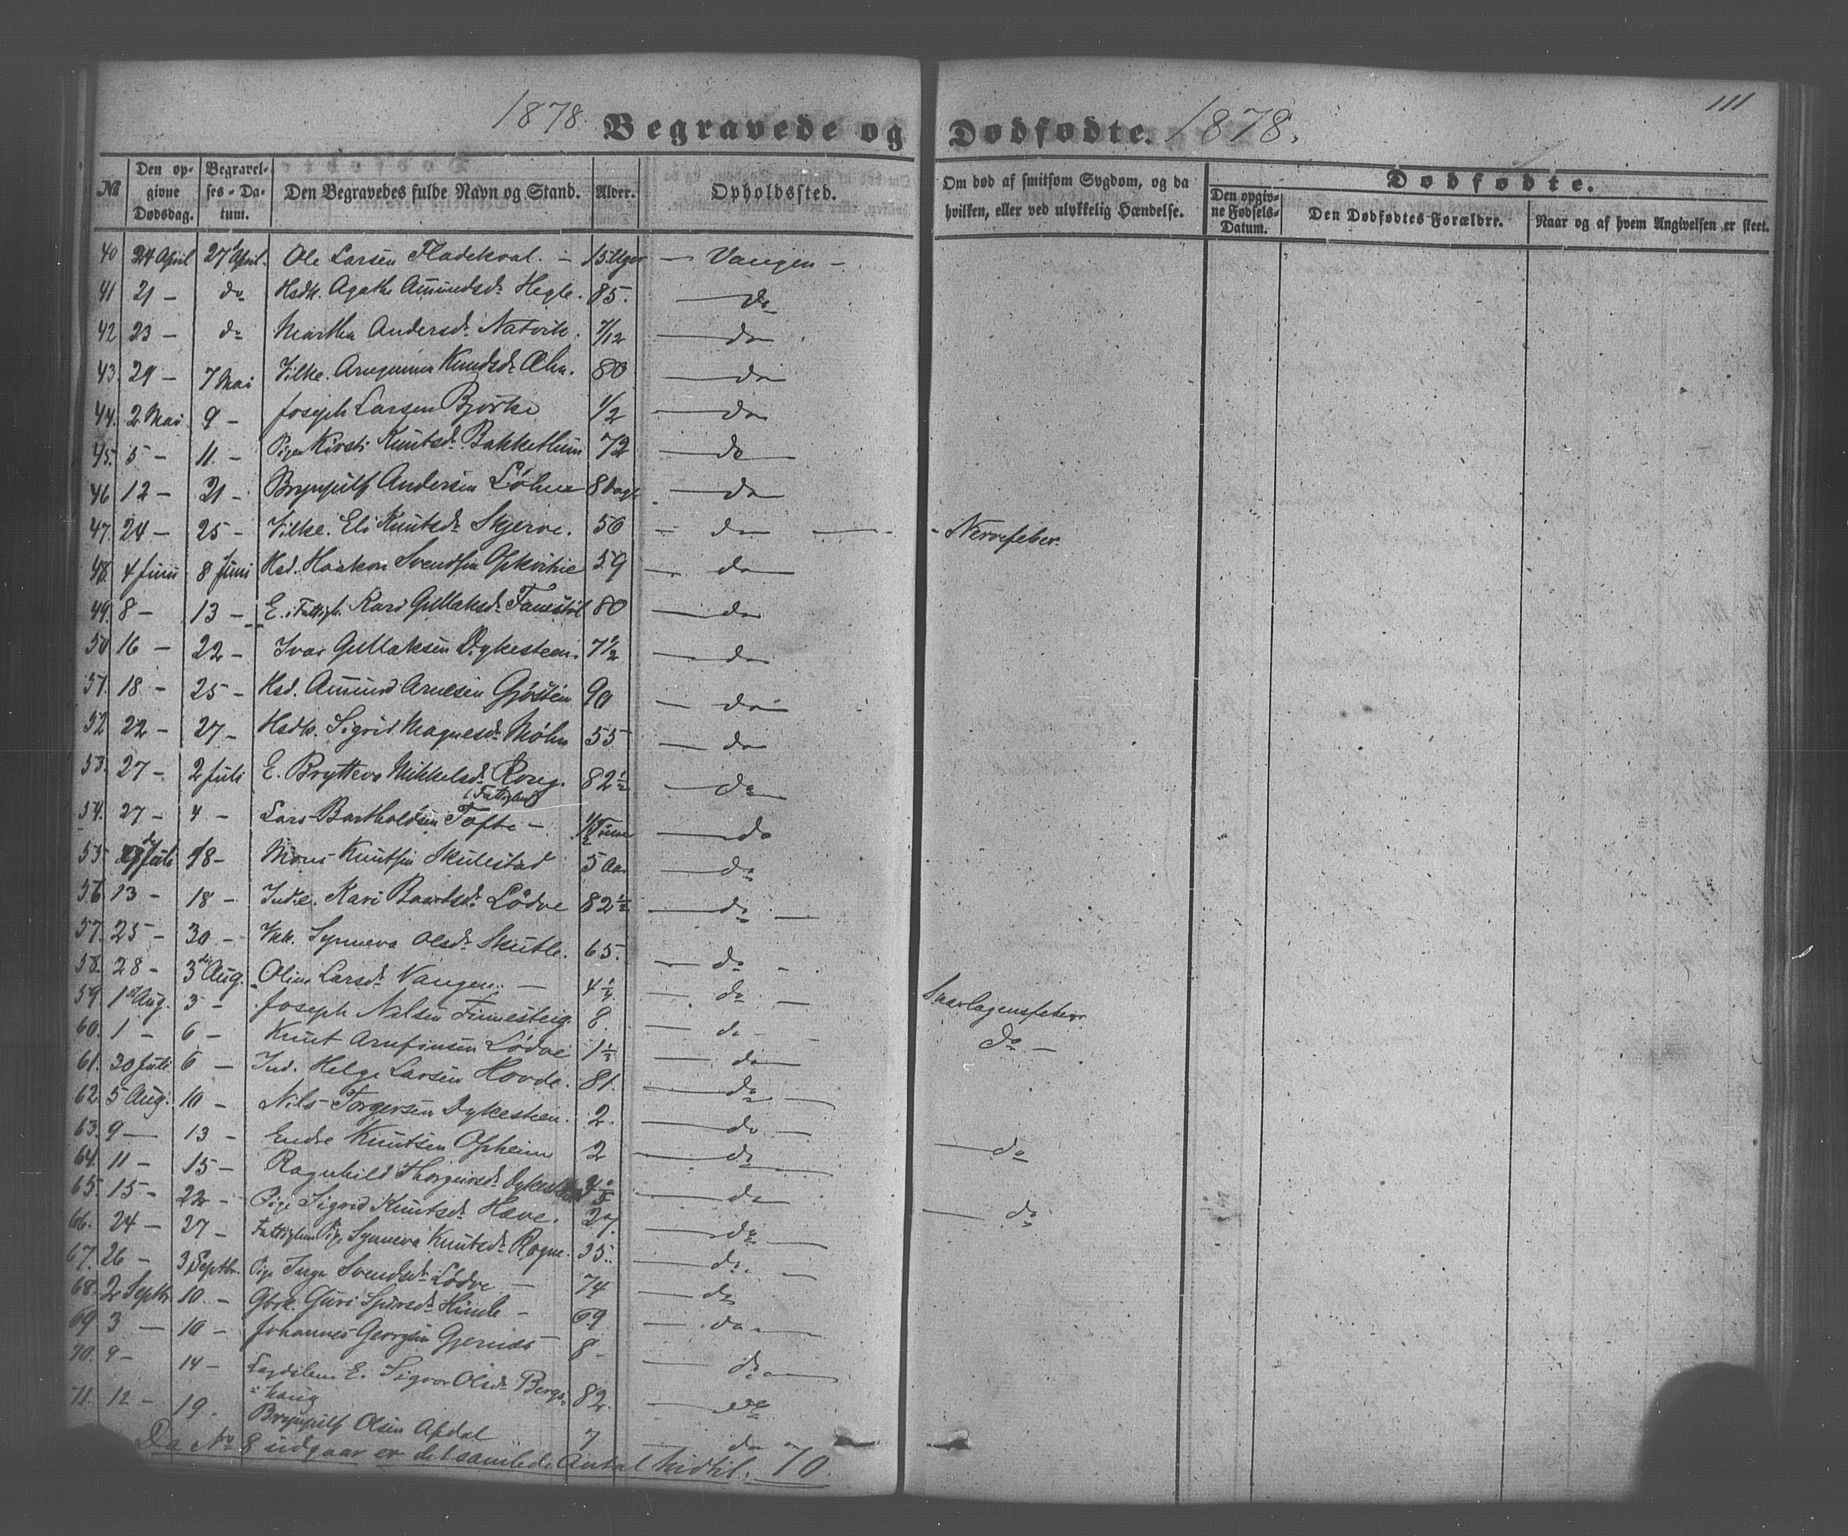 1878. Begravede og Dødfødte. 1878. 111
No Den opgivne Dødsdag. Begravelses-Datum. Den Begravedes fulde Navn og Stand. Alder. Opholdssted. Om død af smitsom Sygdom, og da hvilken, eller ved ulykkelig Hændelse. Dødfødte.
Den opgivne Fødsels-Datum. Den Dødfødtes Forældre. Naar og af hvem Angivelsen er skeet.
40 24 April 27 April. Ole Larsen Fladekval. – 15 Uger – Vangen –
41 21 – do Hsdk. Agathe Amundsd. Hegle. 85. – do
42 23 – do Martha Andersd. Natvik. 7/12 – do
43. 29 – 7 Mai Vilke. Knudsd. 80 – do
44. 2 Mai 9 – Joseph Larsen Bjørke 1/2 – do
45. 5 – 11. – Pige Kirsti Knutsd. Bakkethun 72 – do
46 12 – 21 – Brynjulf Andersen Løhne 8 Dage – do
47. 24 – 25 – Vilke. Eli Knutsd. Skjerve. 50 – do – Nervefeber.
48. 4 Juni 8 Juni Hsd. Haakon Svendsen 59 – do
49. 8 – 13 – E. Fattigl. Kari Gullaksd. 80 – do
50 16 – 22 – Ivar Gullaksen Dykesteen. 7 1/2 – do
51. 18 – 25 – Hsd. Amund Arnesen Gjøstein 90 – do
52 22 – 27 – Hsdk. Sigrid Magnesd. Møhn 55 – do
53. 27 – 2 Juli E. Brytteva Mikkelsd. Rong. 82 1/2 – do
54. 27 – 4 – Lars Bartholdsen Tøfte – – do
55 Juli 18 – Mons Knutsen Skulestad 5 Aar – do
56. 13 – 18 – Inde. Kari Baardsd. Lødve 82 1/2 – do –
57. 25 – 30 – Synneva Olsd. Skutle. 65. – do –
58. 28 – 3 Aug. Oline Larsd. Vangen. – 4 1/4 – do –
59. 1 Aug. 3 – Joseph Nilsen Finnesteig. 8. – do – Skarlagensfeber
60. 1 – 6 – Knut Arnfinsen Lødve 1 1/2 – do do –
61. 30 Juli 6 – Ind. Helge Larsen Hovda. 81. – do –
62. 5 Aug. 10 – Nils Torgersen Dykesteen. 2. – do –
63. 9 – 13 – Endre Knutsen Opheim 2 – do – – do
64. 11 – 15 – Ragnhild – do
65. 15 – 22 – Pige Sigrid Knutsd. Hæve. 27. – do – – do
66. 24 – 27 – Pige Synneva Knutsd. Rogne. 35. – do. –
67. 26 – 3 Septbr. Pige Inga Svendsd. Lødve – 74 – do
68. 2 Septbr 10. – Guri Hinle – 69 – do –
69 3 – 10 – Johannes Georgsen Gjernæs – 8 – – do –
70. 9 – 14 – E. Sigvor Olsd. Bergs-
haug 82. – do
71. 12 – 19. Brynjulf Olsen Afdal 7 – do
Da No 8 udgaar er det samlede Antal hidtil. 70.